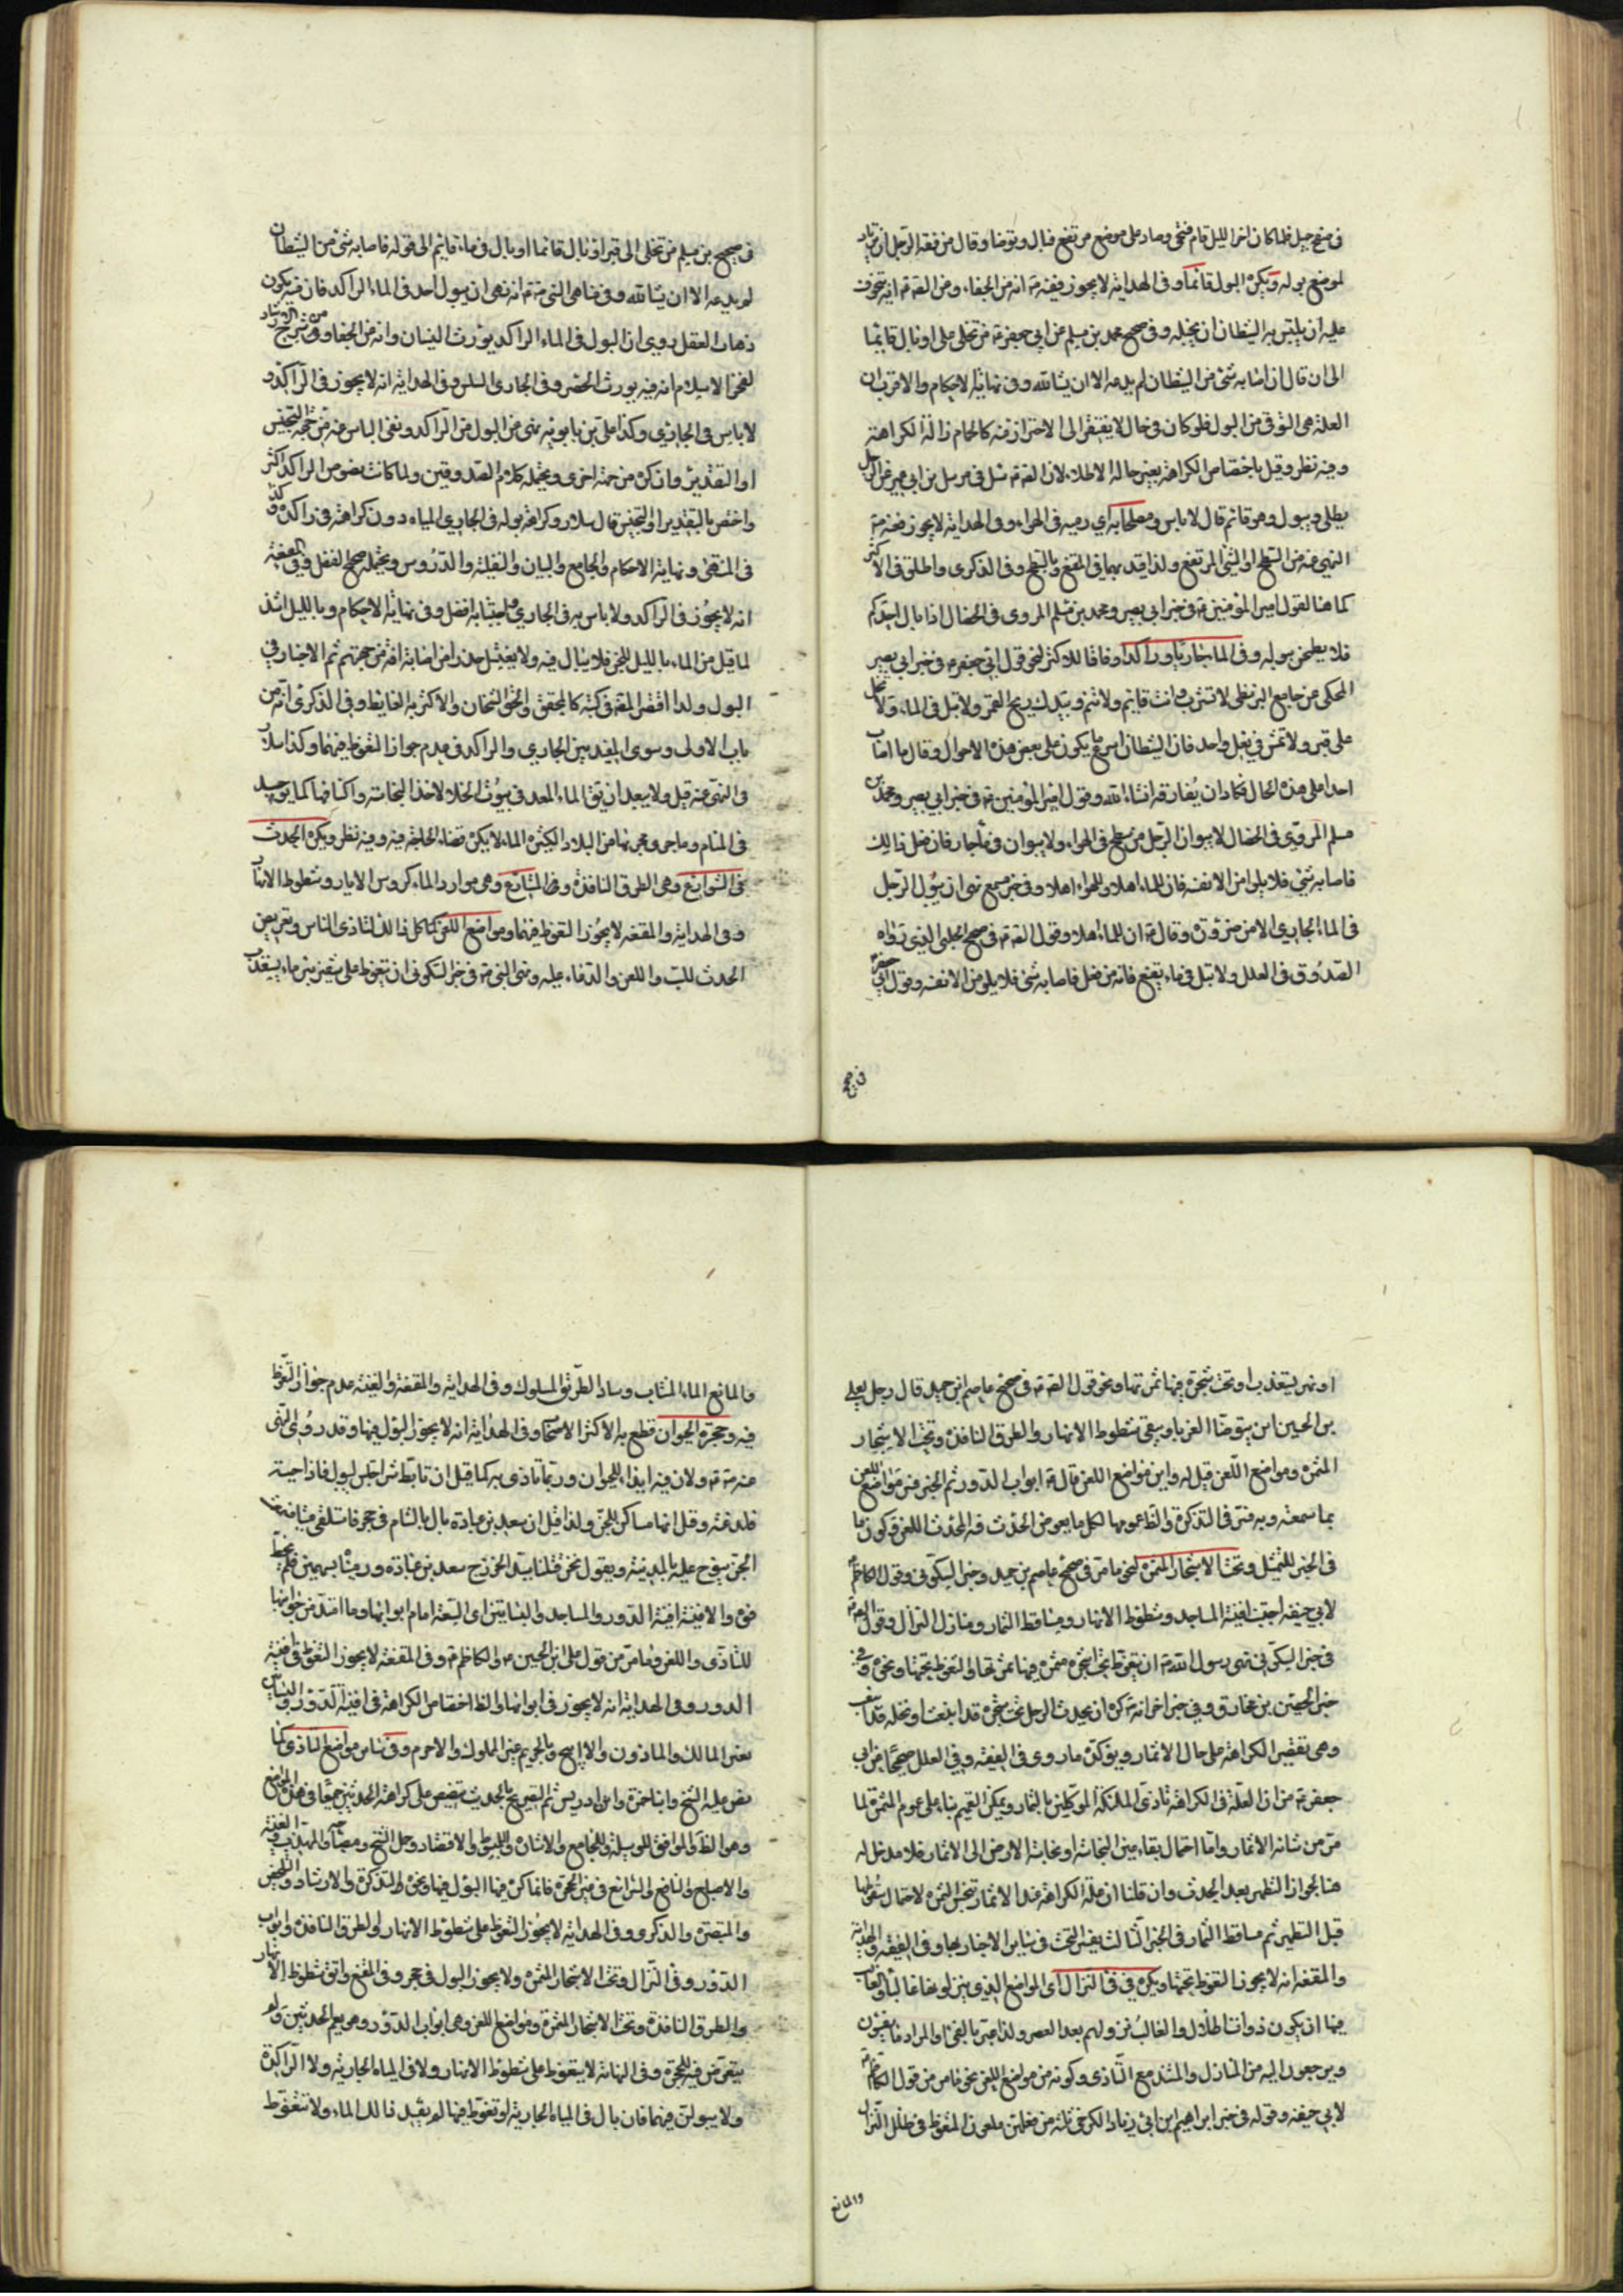 في سفح جبل فلما كان اخر الليل قام فتنحى وصار على موضع مرتفع فبال وتوضا وقال من فقه الرجل ان يرتاد
لموضع بوله ويكره البول قائما وفي الهداية لا يجوز فعنه انه من الجفاء ومن الصادق انه يتخوف
عليه ان يلتبس به الشيطان ان يخبله وفي صحيح محمد بن مسلم عن ابي جعفر من تخلى على او بال قائما
الى ان قال ان اصابه شئ من الشيطان لم يدعه الا ان يشاء الله وفي نهاية الاحكام والاقرب ان
العلة هي التوقي من البول فلو كان في حال لا يفتقر الى الاحتراز منه كالحمام زالت الكراهة
وفيه نظر وقيل باختصاص الكراهة بغير حالة الاطلاء لان سئل في مرسل بن ابي عمير عن الرجل
يطلي ويبول وهو قائم قال لا باس و اي رميه في الهواء وفي الهداية لا يجوز فعنه
النهي عنه من السطح او الشئ المرتفع ولذا قيد بهما في المقنع وبالسطح وفي الذكرى واطلق في الاكثر
كما هنا لقول امير المؤمنين في خبر ابي بصير ومحمد بن مسلم المروي في الخصال اذا بال احدكم
فلا يطمحن ببوله وفي الماء جاريا وراكدا وفاقا للاكثر لنحو قول ابي جعفر في خبر ابي بصير
المحكي عن جامع البزنطي لا تشرب وانت قائم ولا تنم وبيدك ريح الغمر ولا تبل في الماء ولا تخل
على قبر ولا تمش في نعل واحد فان الشيطان اسرع ما يكون على بعض هذه الاحوال وقال ما اصاب
احدا على هذه الحال فكاد ان يفارقه ان شاء الله وقول امير المؤمنين في خبر ابي بصير ومحمد بن
مسلم المروي في الخصال لا يبولن الرجل من سطح في الهواء ولا يبولن في ماء جار فان فعل ذلك
فاصابه شئ فلا يلومن الا نفسه فان للماء اهلا وللهواء اهلا وفي خبر مسمع نهى ان يبول الرجل
في الماء الجاري الا من ضرورة وقال ان للماء اهلا وقول الصادق في صحيح الحلبي الذي رواه
الصدوق في العلل ولا تبل في ماء نقيع فانه من فعل فاصابه شئ فلا يلومن الا نفسه وقول ابي جعفر
في صحيح
في صحيح بن مسلم من تخلى الى قبر او بال قائما او بال في ماء قائم الى قوله فاصابه شئ من الشيطان
لم يدعه الا ان يشاء الله وفي مناهي النبي انه نهى ان يبول احد في الماء الراكد فان فيه يكون
ذهاب العقل وروي ان البول في الماء الراكد يورث النسيان وانه من الجفا وفي شرح
لفخر الاسلام انه فيه يورث الحصر وفي الجاري السلس وفي الهداية انه لا يجوز في الراكد و
لا باس في الجاري وكذا علي بن بابويه نهى عن البول في الراكد ونفى الباس عنه من جهة التنجيس
او التقذير وان كره من جهة اخرى ويحتمله كلام الصدوقين ولما كانت نصوص الراكد اكثر
واختص بالتقدير او التنجيس قال سلار وكراهة بوله في الجاري المياه دون كراهته في راكده
في المنتهى ونهاية الاحكام والجامع والبيان والنفلية والدروس ويحتمله صحيح الفضيل وفي المقنعة
انه لا يجوز في الراكد ولا باس به في الجاري واجتنابه افضل وفي نهاية الاحكام وبالليل اشد
لما قيل من الماء بالليل للجن فلا يبال فيه ولا يغتسل حذرا من اصابة افة من جهتهم ثم الاخبار في
البول ولذا اقتصر المصنف في كتبه كالمحقق والحق الشيخان والاكثر به الغايط وفي الذكرى انه من
باب الاولى وسوى المفيد بين الجاري والراكد في عدم جواز التغوط فيهما وكذا سلار
في النهي عنه قيل ولا يبعد ان يق الماء المعد في بيوت الخلاء لاخذ النجاسة واكتنافها كما يوجد
في الشام وما جرى مجريها من البلاد الكثيرة الماء لا يكره قضاء الحاجة فيه وفيه نظر ويكره الحدث
في الشوارع وهي الطرق النافذة وفي المشارع وهي موارد الماء كروس الابار وشطوط الانهار
وفي الهداية والمقنعة لا يجوز التغوط فيهما ومواضع اللعن كما كل ذلك لتاذى الناس وتعريض
الحدث للسب واللعن والدعاء عليه ونهى النبي في خبر السكوني ان يتغوط على شفير بئر ماء يستعذب
او نهر يستعذب او تحت شجرة فيها ثمرتها ونحو قول الصادق في صحيح عاصم ابن حميد قال رجل لعلي
بن الحسين اين يتوضا الغربا ويتقى شطوط الانهار والطرق النافذة وتحت الاشجار
المثمرة ومواضع اللعن قيل له واين مواضع اللعن قال ابواب الدور ثم الخبر فسر مواضع اللعن
بما سمعته وبه فسر في التذكرة والظ عمومها لكل ما يعرض الحدث فيه المحدث للعن فيكون ما
في الخبر للتمثيل وتحت الاشجار المثمرة لنحو ما مر في صحيح عاصم بن حميد وخبر السكوني وقول الكاظم
لابي حنيفة اجتنب افنية المساجد وشطوط الانهار ومساقط الثمار ومنازل النزال وقول
في خبر السكوني نهى رسول الله ان يتغوط تحت شجرة مثمرة فيها ثمرتها او التغوط تحتها ونحوه في
خبر الحصين بن مخارق وفي خبر اخر انه كره ان يحدث الرجل تحت شجرة قد اينعت او نخلة قد اينعت
وهي بقصر الكراهة على حال الاثمار ويؤكده ما روي في الفقيه وفي العلل صحيحا عن ابي
جعفر من ان العلة في الكراهة تاذي الملئكة الموكلين بالثمار ويمكن التعميم بناء على عموم المثمرة لما
مر من شانه الاثمار واما احتمال بقاء عين النجاسة او نجاسة الارض الى الاثمار فلا مدخل له
هنا لجواز التطهر بعد الحدث وان قلنا ان علة الكراهة عند الاثمار تنجس الثمرة لاحتمال سقوطها
قبل التطهير ثم مساقط الثمار في الخبر الثالث يفسر التحت في ساير الاخبار بها وفي الفقيه والهداية
والمقنعة انه لا يجوز التغوط تحتها ويكره في في النزال اي المواضع الذي ينزلونها غالبا والغالب
فيها ان يكون ذوات اظلال والغالب نزولهم بعد العصر ولذا عبر بالفئ والمراد ما يفيئون
ويرجعون اليه من المنازل والمستند مع التاذي وكونه من مواضع اللعن نحو ما مر من قول الكاظم
لابي حنيفة وقوله في خبر ابراهيم ابن ابي زياد الكرخي ثلثة من فعلهن ملعون المتغوط في ظلال النزال
والمانع
والمانع الماء المنتاب وساد الطريق المسلوك وفي الهداية والمقنعة والفقيه عدم جواز التغوط
فيه وجحرة الحيوان قطع به الاكثر الاصحاب وفي الهداية انه لا يجوز البول فيها وقد روي النهي
عنه ولان فيه ايذاء للحيوان وربما تاذى به كما قيل ان تابط شرا جلس ليبول فاذا حية
فلدغته وقيل انها مساكن للجن ولذا قيل ان سعد بن عبادة بال بالشام في جحر فاستلقى ميتا فسمعت
الجن ينوح عليه بالمدينة ويقول نحن قتلنا سيد الخزرج سعد بن عبادة ورميناه بسهمين فلم يخط
فؤاده والافنية افنية الدور والمساجد والبساتين اي المتسعة امام ابوابها وما امتد من جوانبها
للتاذي واللعن وما مر من قول علي ابن الحسين والكاظم وفي المقنعة لا يجوز التغوط في افنية
الدور وفي الهداية انه لا يجوز في ابوابها والظ اختصاص الكراهة في افنية الدور والبساتين
بغير المالك والماذون والا ابيح والتحريم غير المملوك والا حرم وفي ساير مواضع التاذي كما
نص عليه الشيخ وابنا حمزة وابن ادريس ثم التصريح بالحدث تنصيص على كراهة الحدثين جميعا في هذه المواضع
وهو الظ والموافق للوسيلة والجامع والاشارة والمبسوط والاقتصاد وجمل الشيخ ومصباحه والمهذب والغنية
والاصباح والنافع والشرايع في غير الجحرة فانما كره فيها البول فيها ونحوه ظ التذكرة والارشاد والتلخيص
والتبصرة والذكرى وفي الهداية لا يجوز التغوط على شطوط الانهار والطرق النافذة وابواب
الدور وفي النزال وتحت الاشجار المثمرة ولا يجوز البول في جحر وفي المقنع واتق شطوط الانهار
والطرق النافذة وتحت الاشجار المثمرة ومواضع اللعن وهي ابواب الدور وهو يعم الحدثين ولم
يتعرض فيه للجحرة وفي النهاية لا يتغوط على شطوط الانهار ولا في المياه الجارية ولا الراكدة
ولا يبولن فيهما فان بال في المياه الجارية او تغوط فيها لم يفسد ذلك الماء ولا تتغوط